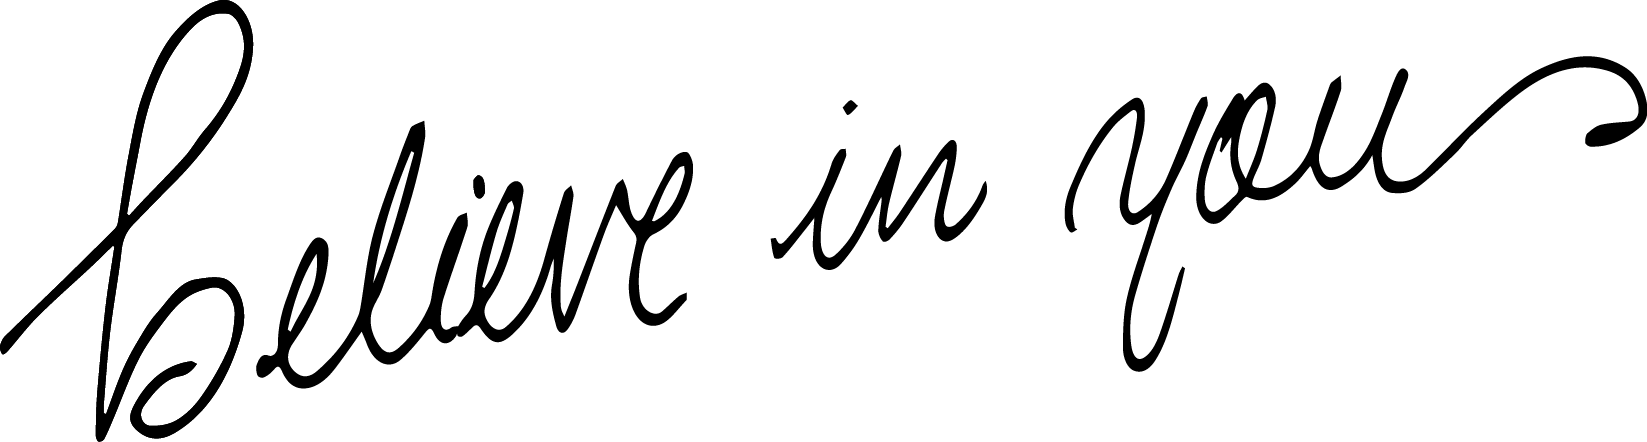 believe in you